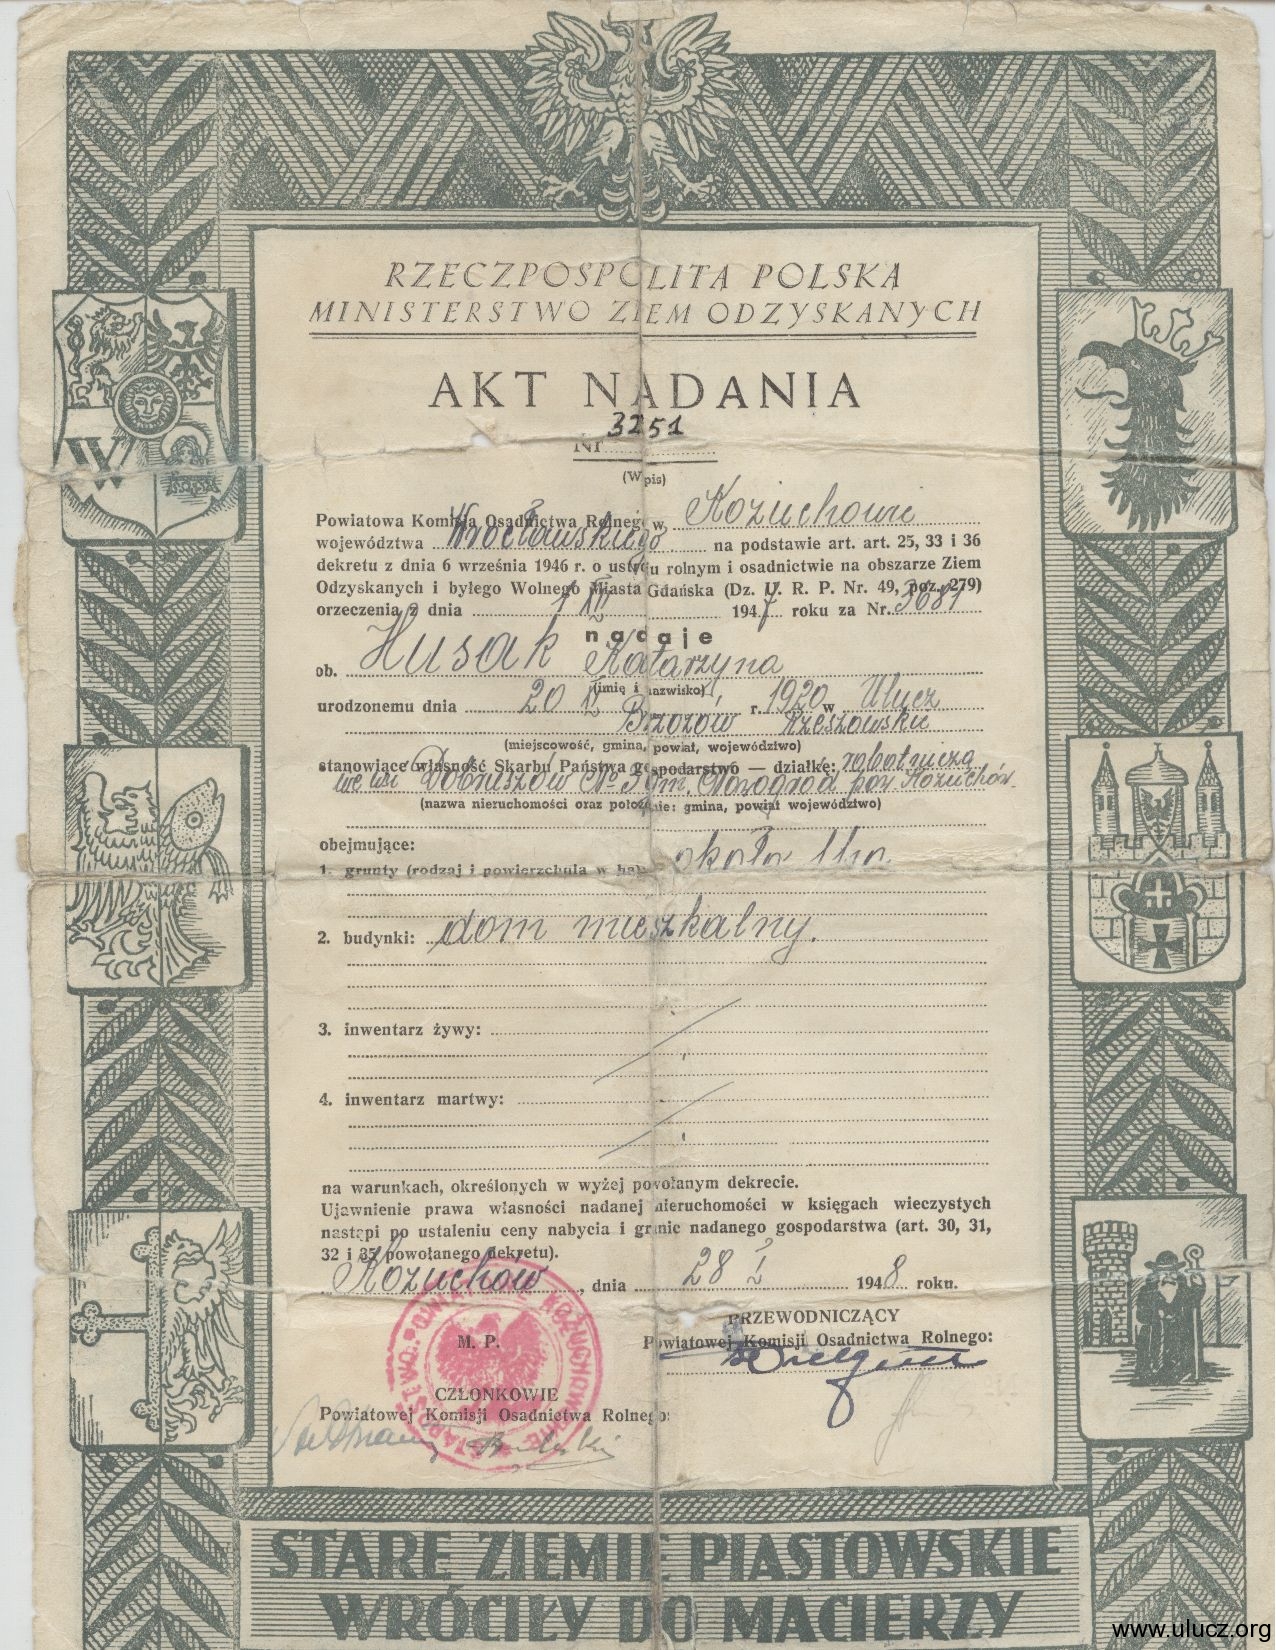 RZECZPOSPOLITA POLSKA
MINISTERSTWO ZIEM ODZYSKANYCH
AKT NADANIA
Nr 3251
(Wpis)
Powiatowa Komisja Osadnictwa Rolnego w Kożuchowie
województwa Wrocławskiego na podstawie art. art. 25, 33 i 36
dekretu z dnia 6 września 1946 r. o ustroju rolnym i osadnictwie na obszarze Ziem
Odzyskanych i byłego Wolnego Miasta Gdańska (Dz. U. R. P. Nr. 49, poz. 279)
orzeczenia z dnia 1 IV 1947 roku za Nr. 3681
nadaje
ob. Husak Katarzyna
(imię i nazwisko)
urodzonemu dnia 20 r. 1920 w Ulucz
Brzozów Rzeszowskie
(miejscowość, gmina, powiat, województwo)
stanowiące własność Skarbu Państwa gospodarstwo — działkę: robotniczą
we wsi Dobruszów No gm. Nowogród pow. Kożuchów
(nazwa nieruchomości oraz położenie: gmina, powiat województwo)
obejmujące:
1. grunty (rodzaj i powierzchnia w ha) około 1 ha
2. budynki: dom mieszkalny.
3. inwentarz żywy:
4. inwentarz martwy:
na warunkach, określonych w wyżej powołanym dekrecie.
Ujawnienie prawa własności nadanej nieruchomości w księgach wieczystych
nastąpi po ustaleniu ceny nabycia i granic nadanego gospodarstwa (art. 30, 31,
32 i 35 powołanego dekretu).
Kożuchów, dnia 28 I 1948 roku.
PRZEWODNICZĄCY
M. P. Powiatowej Komisji Osadnictwa Rolnego:
CZŁONKOWIE
Powiatowej Komisji Osadnictwa Rolnego:
STAROSTWO POWIATOWE KOŻUCHOWSKIE
W
STARE ZIEMIE PIASTOWSKIE
WRÓCIŁY DO MACIERZY
www.ulucz.org